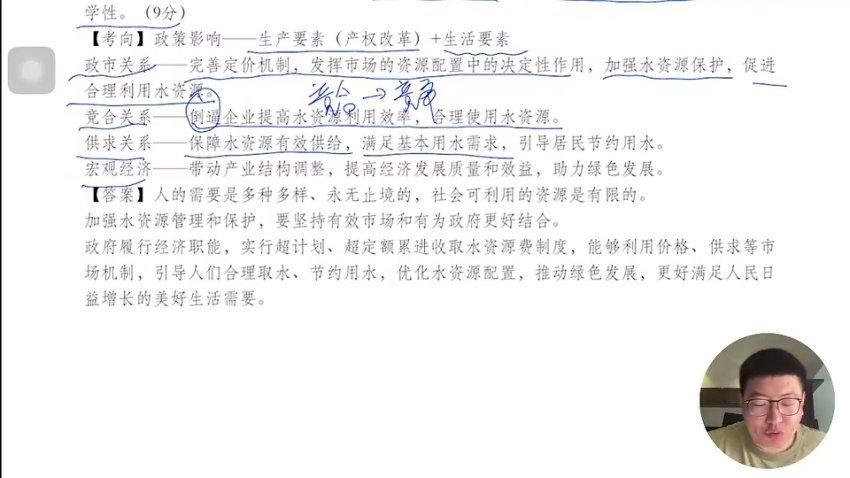 学性。(9分)
【考向】政策影响——生产要素(产权改革)+生活要素
政市关系——完善定价机制,发挥市场的资源配置中的决定性作用,加强水资源保护,促进
合理利用水资源。
竞合 → 竞争
竞合关系——倒逼企业提高水资源利用效率,合理使用水资源。
供求关系——保障水资源有效供给,满足基本用水需求,引导居民节约用水。
宏观经济——带动产业结构调整,提高经济发展质量和效益,助力绿色发展。
【答案】人的需要是多种多样、永无止境的,社会可利用的资源是有限的。
加强水资源管理和保护,要坚持有效市场和有为政府更好结合。
政府履行经济职能,实行超计划、超定额累进收取水资源费制度,能够利用价格、供求等市
场机制,引导人们合理取水、节约用水,优化水资源配置,推动绿色发展,更好满足人民日
益增长的美好生活需要。